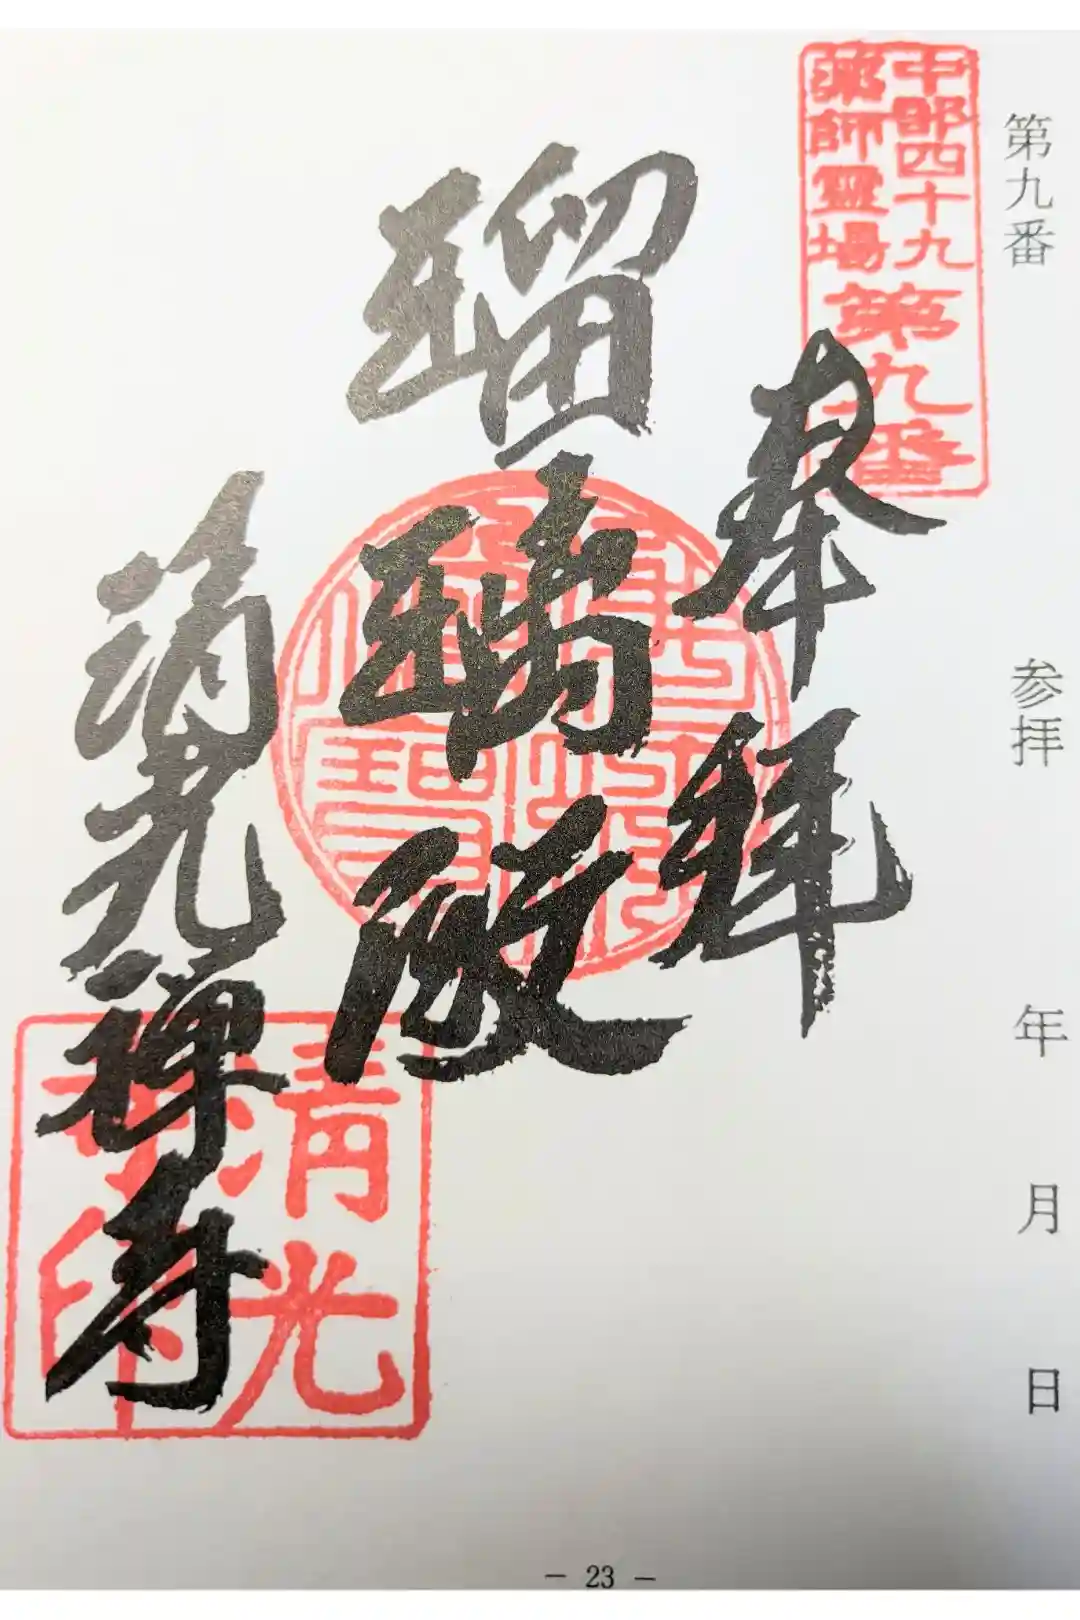 第九番
参拝　年　月　日
中部四十九
薬師霊場
第九番
奉拝
瑠璃殿
清光禅寺
清光
- 23 -